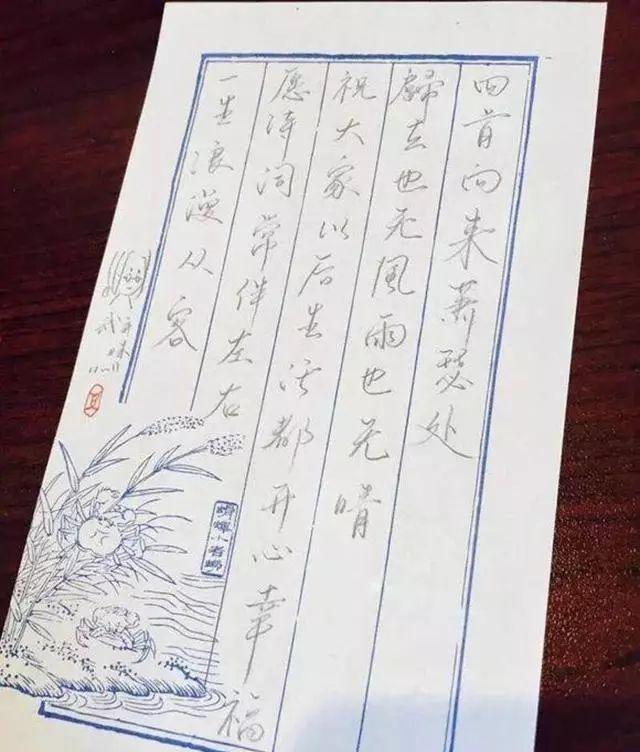 回首向来萧瑟处
归去也无风雨也无晴
祝大家以后生活都开心幸福
愿诗词常伴左右
一生浪漫从容